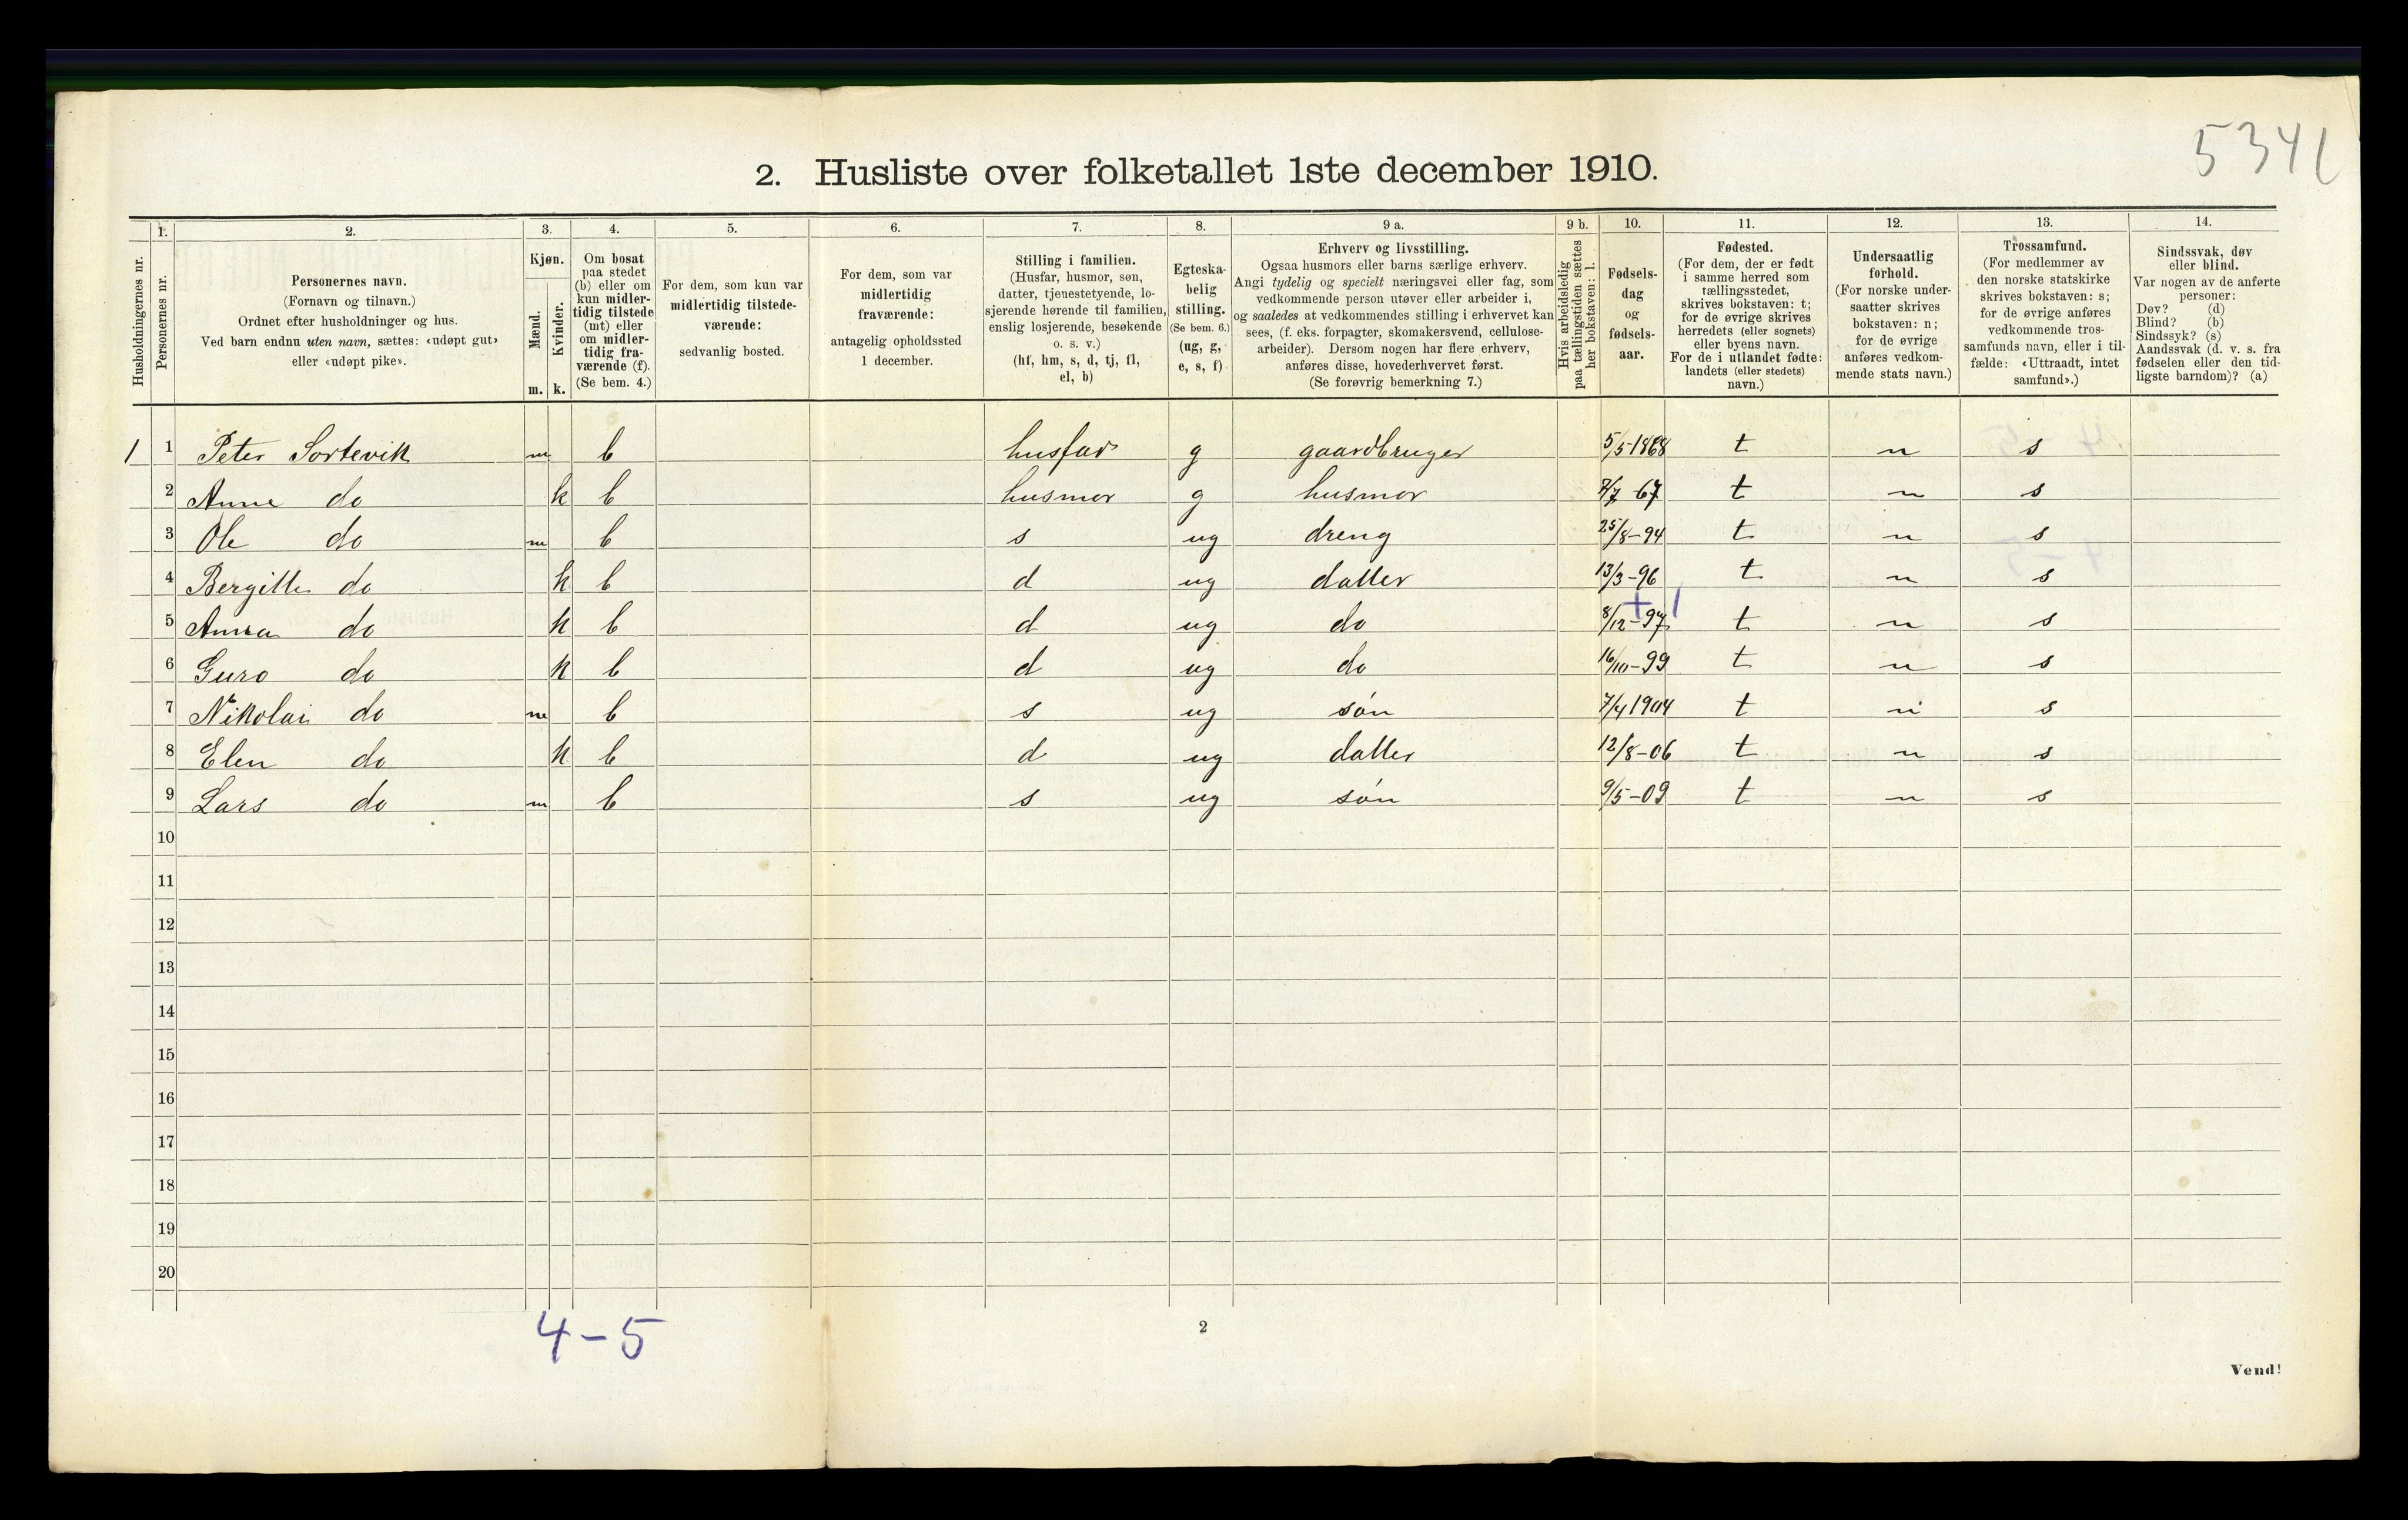 534
2. Husliste over folketallet 1ste december 1910.
Husholdningernes nr.
1.
Personernes nr.
2.
Personernes navn.
(Fornavn og tilnavn.)
Ordnet efter husholdninger og hus.
Ved barn endnu uten navn, sættes: «udøpt gut»
eller «udøpt pike».
3.
Kjøn.
Mænd.
Kvinder.
m. k.
4.
Om bosat
paa stedet
(b) eller om
kun midler-
tidig tilstede
(mt) eller
om midler-
tidig fra-
værende (f).
(Se bem. 4.)
5.
For dem, som kun var
midlertidig tilstede-
værende:
sedvanlig bosted.
6.
For dem, som var
midlertidig
fraværende:
antagelig opholdssted
1 december.
7.
Stilling i familien.
(Husfar, husmor, søn,
datter, tjenestetyende, lo-
sjerende hørende til familien,
enslig losjerende, besøkende
o. s. v.)
(hf, hm, s, d, tj, fl,
el, b)
8.
Egteska-
belig
stilling.
(Se bem. 6.)
(ug, g,
e, s, f)
9 a.
Erhverv og livsstilling.
Ogsaa husmors eller barns særlige erhverv.
Angi tydelig og specielt næringsvei eller fag, som
vedkommende person utøver eller arbeider i,
og saaledes at vedkommendes stilling i erhvervet kan
sees, (f. eks. forpagter, skomakersvend, cellulose-
arbeider). Dersom nogen har flere erhverv,
anføres disse, hovederhvervet først.
(Se forøvrig bemerkning 7.)
9 b.
Hvis arbeidsledig
paa tællingstiden sættes
her bokstaven: l.
10.
Fødsels-
dag
og
fødsels-
aar.
11.
Fødested.
(For dem, der er født
i samme herred som
tællingsstedet,
skrives bokstaven: t;
for de øvrige skrives
herredets (eller sognets)
eller byens navn.
For de i utlandet fødte:
landets (eller stedets)
navn.)
12.
Undersaatlig
forhold.
(For norske under-
saatter skrives
bokstaven: n;
for de øvrige
anføres vedkom-
mende stats navn.)
13.
Trossamfund.
(For medlemmer av
den norske statskirke
skrives bokstaven: s;
for de øvrige anføres
vedkommende tros-
samfunds navn, eller i til-
fælde: «Uttraadt, intet
samfund».)
14.
Sindssvak, døv
eller blind.
Var nogen av de anførte
personer:
Døv? (d)
Blind? (b)
Sindssyk? (s)
Aandssvak (d. v. s. fra
fødselen eller den tid-
ligste barndom)? (a)
1 1 Peter Sortevik m b husfar g gaardbruger 5/5-1868 t n s
2 Anne do k b husmor g husmor 7/7 67 t n s
3 Ole do m b s ug dreng 25/8-94 t n s
4 Bergitte do k b d ug datter 13/3-96 t n s
+ 1
5 Anna do k b d ug do 8/12-97 t n s
6 Guro do k b d ug do 16/10-99 t n s
7 Nikolai do m b s ug søn 7/4 1904 t n s
8 Elen do k b d ug datter 12/8-06 t n s
9 Lars do m b s ug søn 9/5-09 t n s
10
11
12
13
14
15
16
17
18
19
20
4-5
2
Vend!